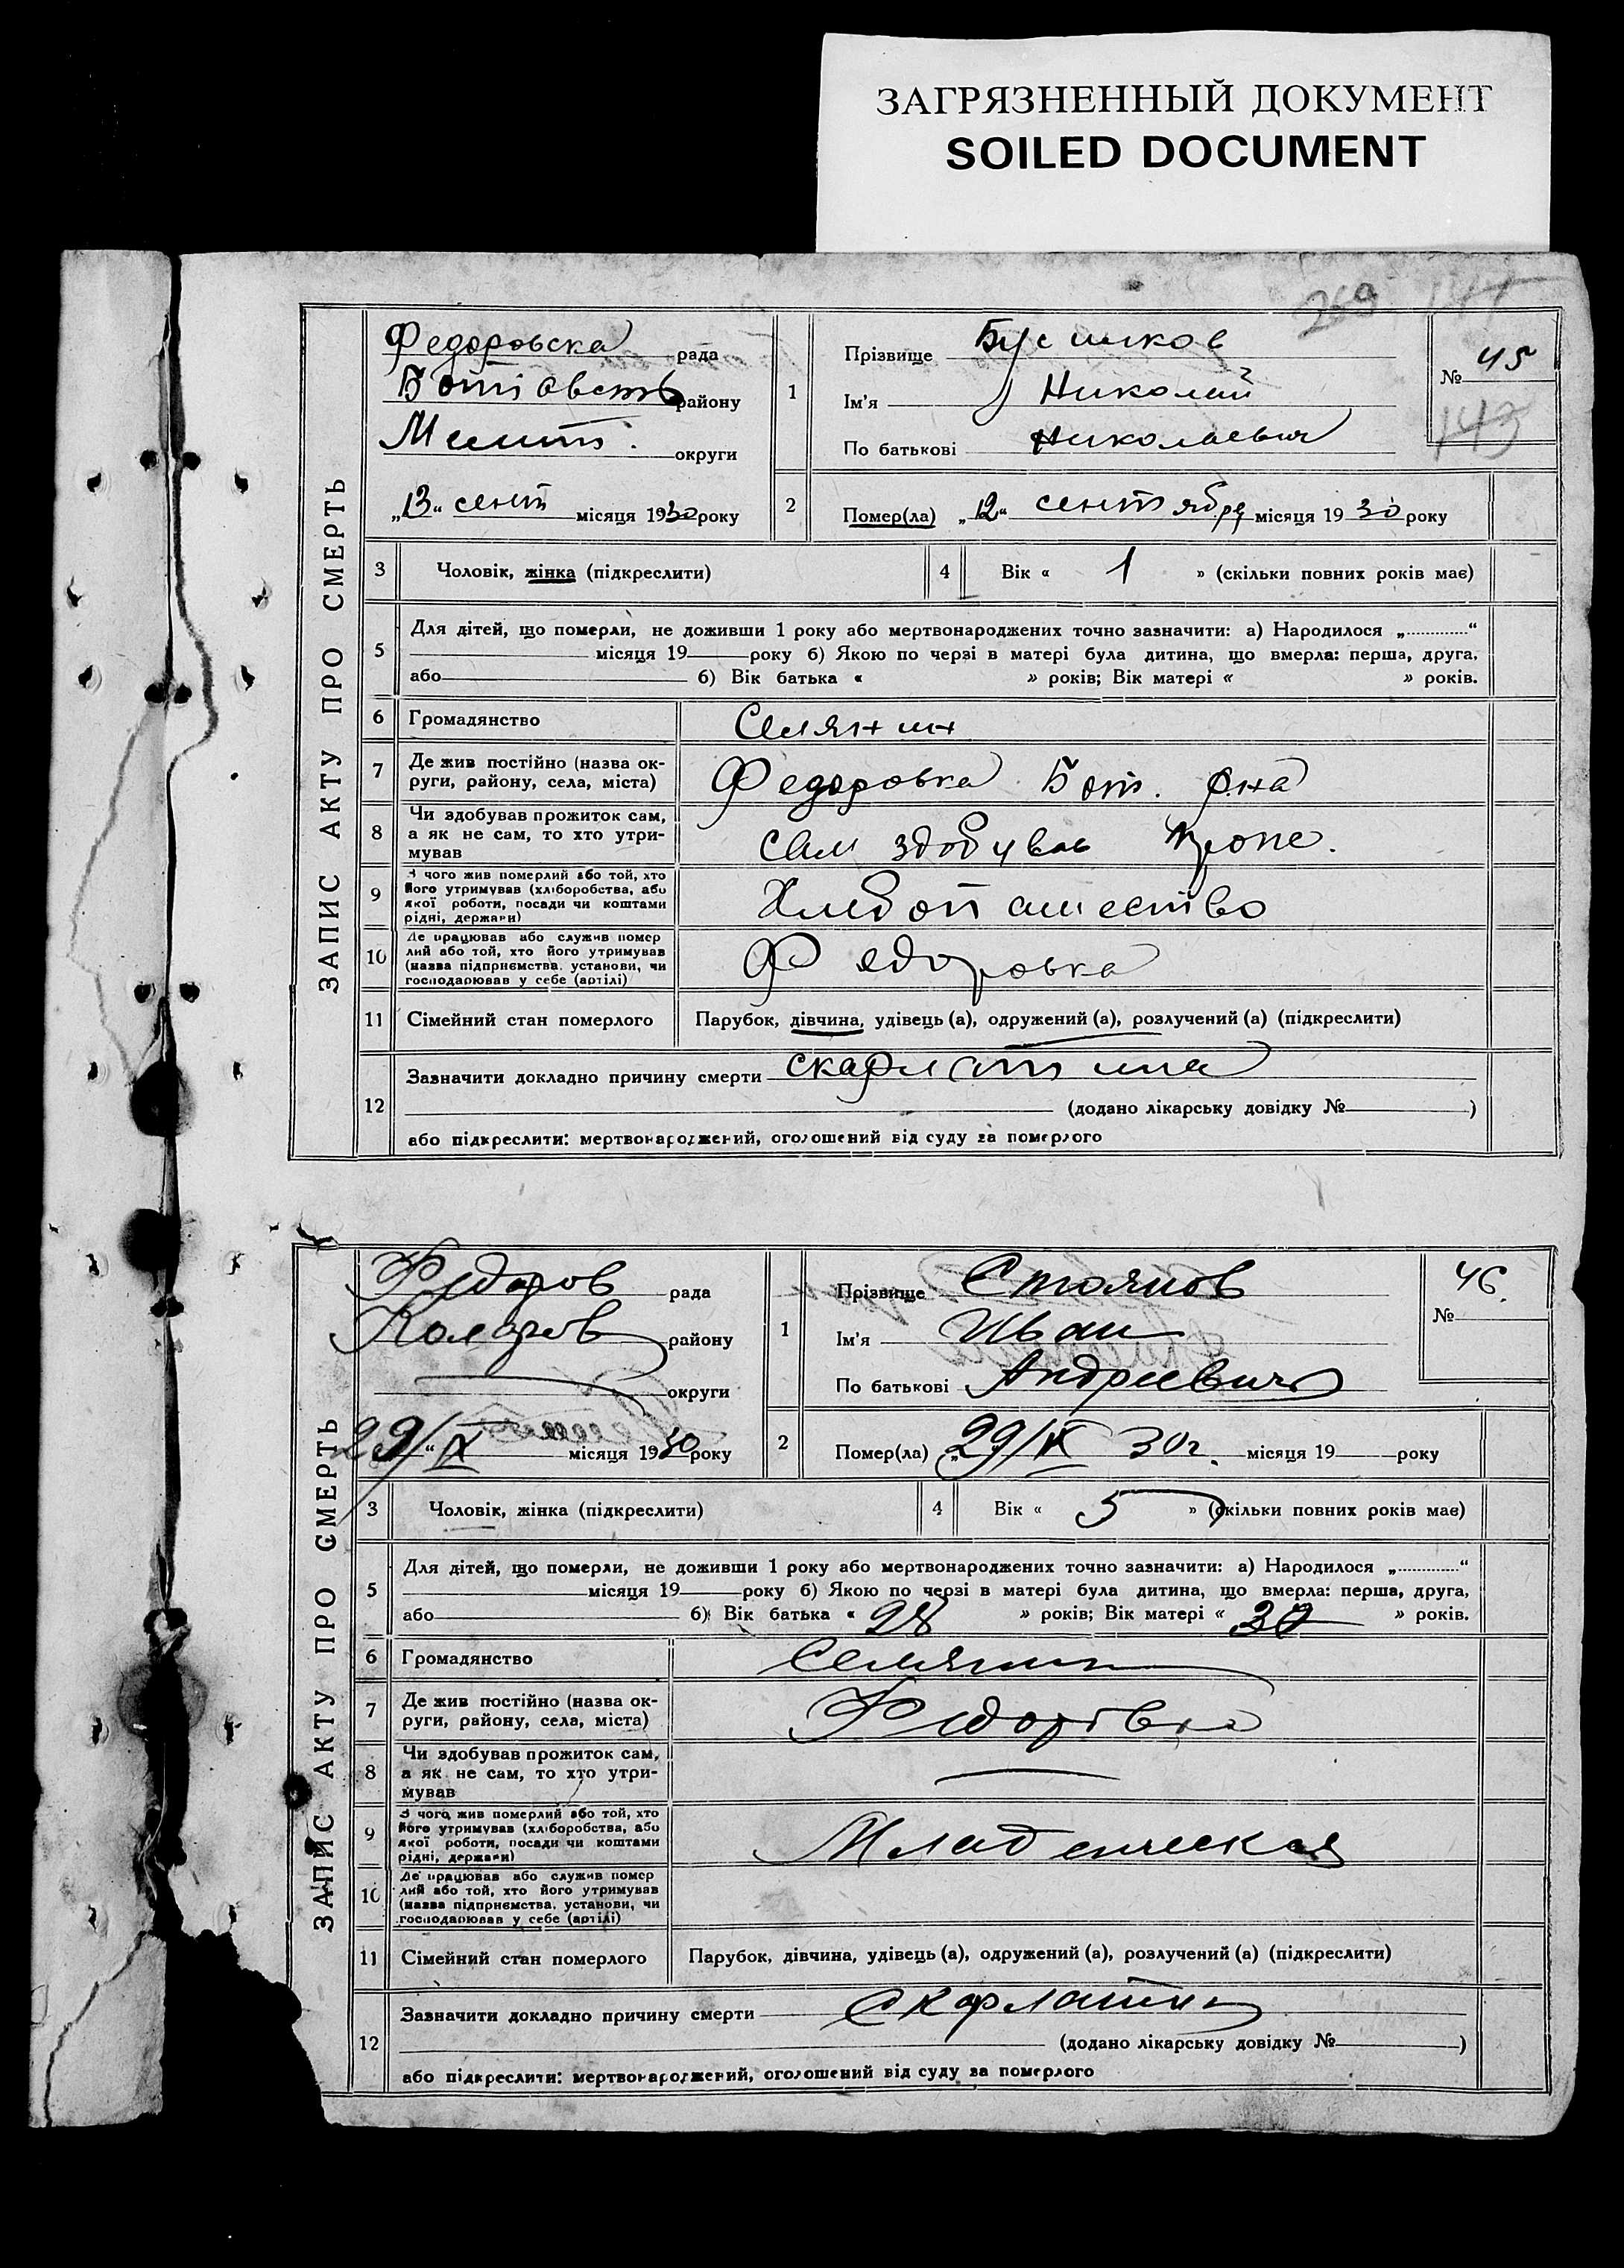 ЗАГРЯЗНЕННЫЙ ДОКУМЕНТ
SOILED DOCUMENT
269
ЗАПИС АКТУ ПРО СМЕРТЬ
Федоровска рада
району
Мелит. округи
„13“ сент місяця 1930 року
1
Прізвище
Ім'я Николай
По батькові Николаевич
№ 45
143
2 Помер(ла) „12“ сентября місяця 1930 року
3 Чоловік, жінка (підкреслити)
4 Вік « 1 » (скільки повних років має)
5 Для дітей, що померли, не доживши 1 року або мертвонароджених точно зазначити: а) Народилося „.............“
місяця 19 року б) Якою по черзі в матері була дитина, що вмерла: перша, друга,
або б) Вік батька « » років; Вік матері « » років.
6 Громадянство Селянин
7 Де жив постійно (назва ок-
руги, району, села, міста) Федоровка Бот. р.на
8 Чи здобував прожиток сам,
а як не сам, то хто утри-
мував сам здобував
9 З чого жив померлий або той, хто
його утримував (хліборобства, або
якої роботи, посади чи коштами
рідні, держави)
10 Де працював або служив помер
лий або той, хто його утримував
(назва підприємства, установи, чи
господарював у себе (артілі) Федоровка
11 Сімейний стан померлого Парубок, дівчина, удівець (а), одружений (а), розлучений (а) (підкреслити)
12 Зазначити докладно причину смерти скарлатина
(додано лікарську довідку № )
або підкреслити: мертвонароджений, оголошений від суду за померлого
ЗАПИС АКТУ ПРО СМЕРТЬ
Федоров рада
Коларов району
округи
29/IX місяця 1930 року
1
Прізвище Стоянов
Ім'я Иван
По батькові Андреевич
46.
№
2 Помер(ла) „29/IX 30г. місяця 19 року
3 Чоловік, жінка (підкреслити)
4 Вік « 5 » (скільки повних років має)
5 Для дітей, що померли, не доживши 1 року або мертвонароджених точно зазначити: а) Народилося „.............“
місяця 19 року б) Якою по черзі в матері була дитина, що вмерла: перша, друга,
або б) Вік батька « 28 » років; Вік матері « » років.
6 Громадянство Селянин
7 Де жив постійно (назва ок-
руги, району, села, міста) Федорівка
8 Чи здобував прожиток сам,
а як не сам, то хто утри-
мував
9 З чого жив померлий або той, хто
його утримував (хліборобства, або
якої роботи, посади чи коштами
рідні, держави) Младенческая
10 Де працював або служив помер
лий або той, хто його утримував
(назва підприємства, установи, чи
господарював у себе (артілі)
11 Сімейний стан померлого Парубок, дівчина, удівець (а), одружений (а), розлучений (а) (підкреслити)
12 Зазначити докладно причину смерти Скарлатина
(додано лікарську довідку № )
або підкреслити: мертвонароджений, оголошений від суду за померлого